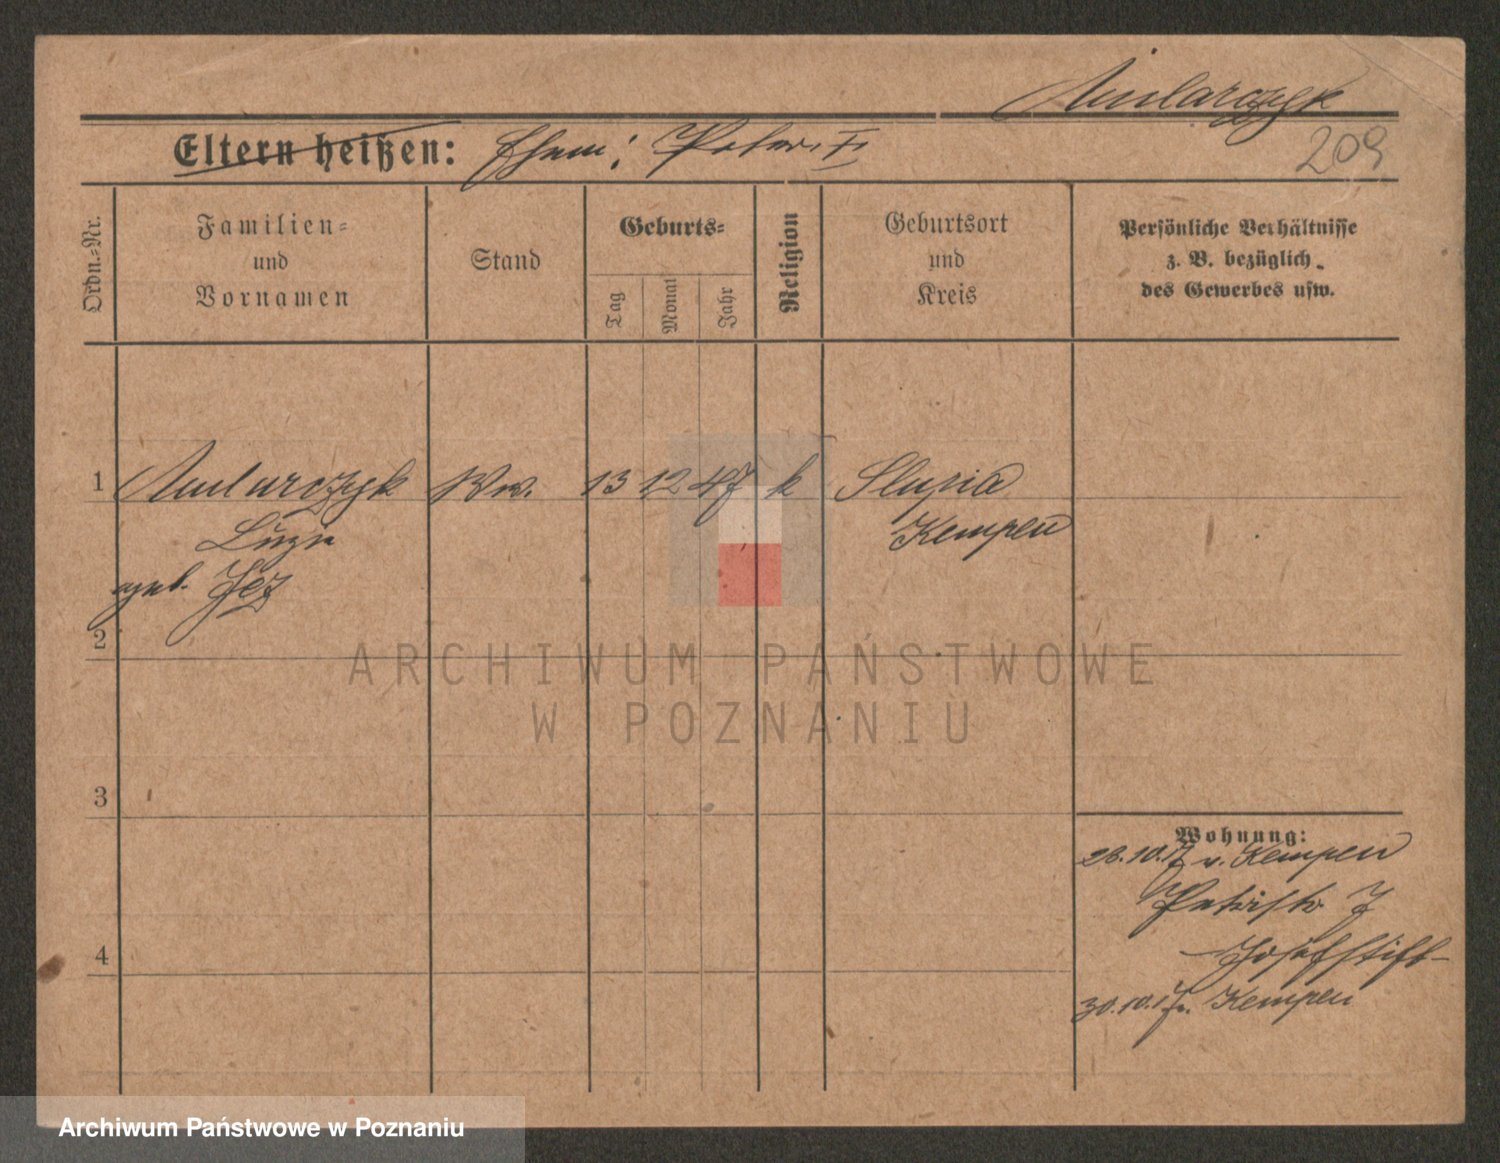 Mularczyk
Eltern heißen: Ehem: Peter, †
209
Ordn.-Nr.
Familien-
und
Vornamen
Stand
Geburts-
Tag
Monat
Jahr
Religion
Geburtsort
und
Kreis
Persönliche Verhältnisse
z. B. bezüglich
des Gewerbes usw.
1 Mularczyk Ww. 13 12 47 k Slupia
Kempen
geb. Jez
2
ARCHIWUM PAŃSTWOWE
W POZNANIU
3
Wohnung:
28.10.17 v. Kempen
Petristr. 7
Josefstift
4
30.10.17 n. Kempen
Archiwum Państwowe w Poznaniu